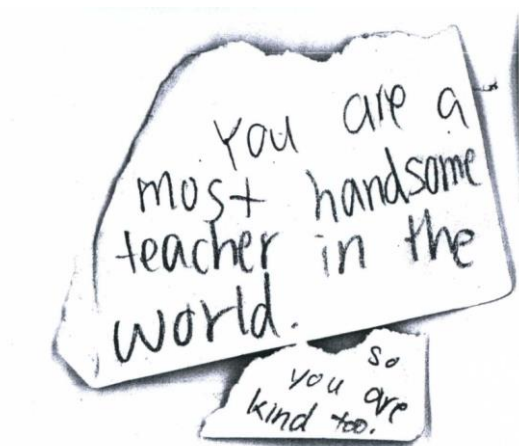 You are a
most handsome
teacher in the
world.
so
you are
kind too.